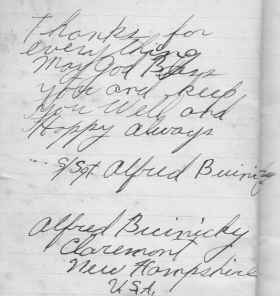 Thanks for
everything
May God Bless
you and keep
you well and
Happy always
S/Sgt Alfred Buinicky
Alfred Buinicky
Claremont
New Hampshire
U.S.A.